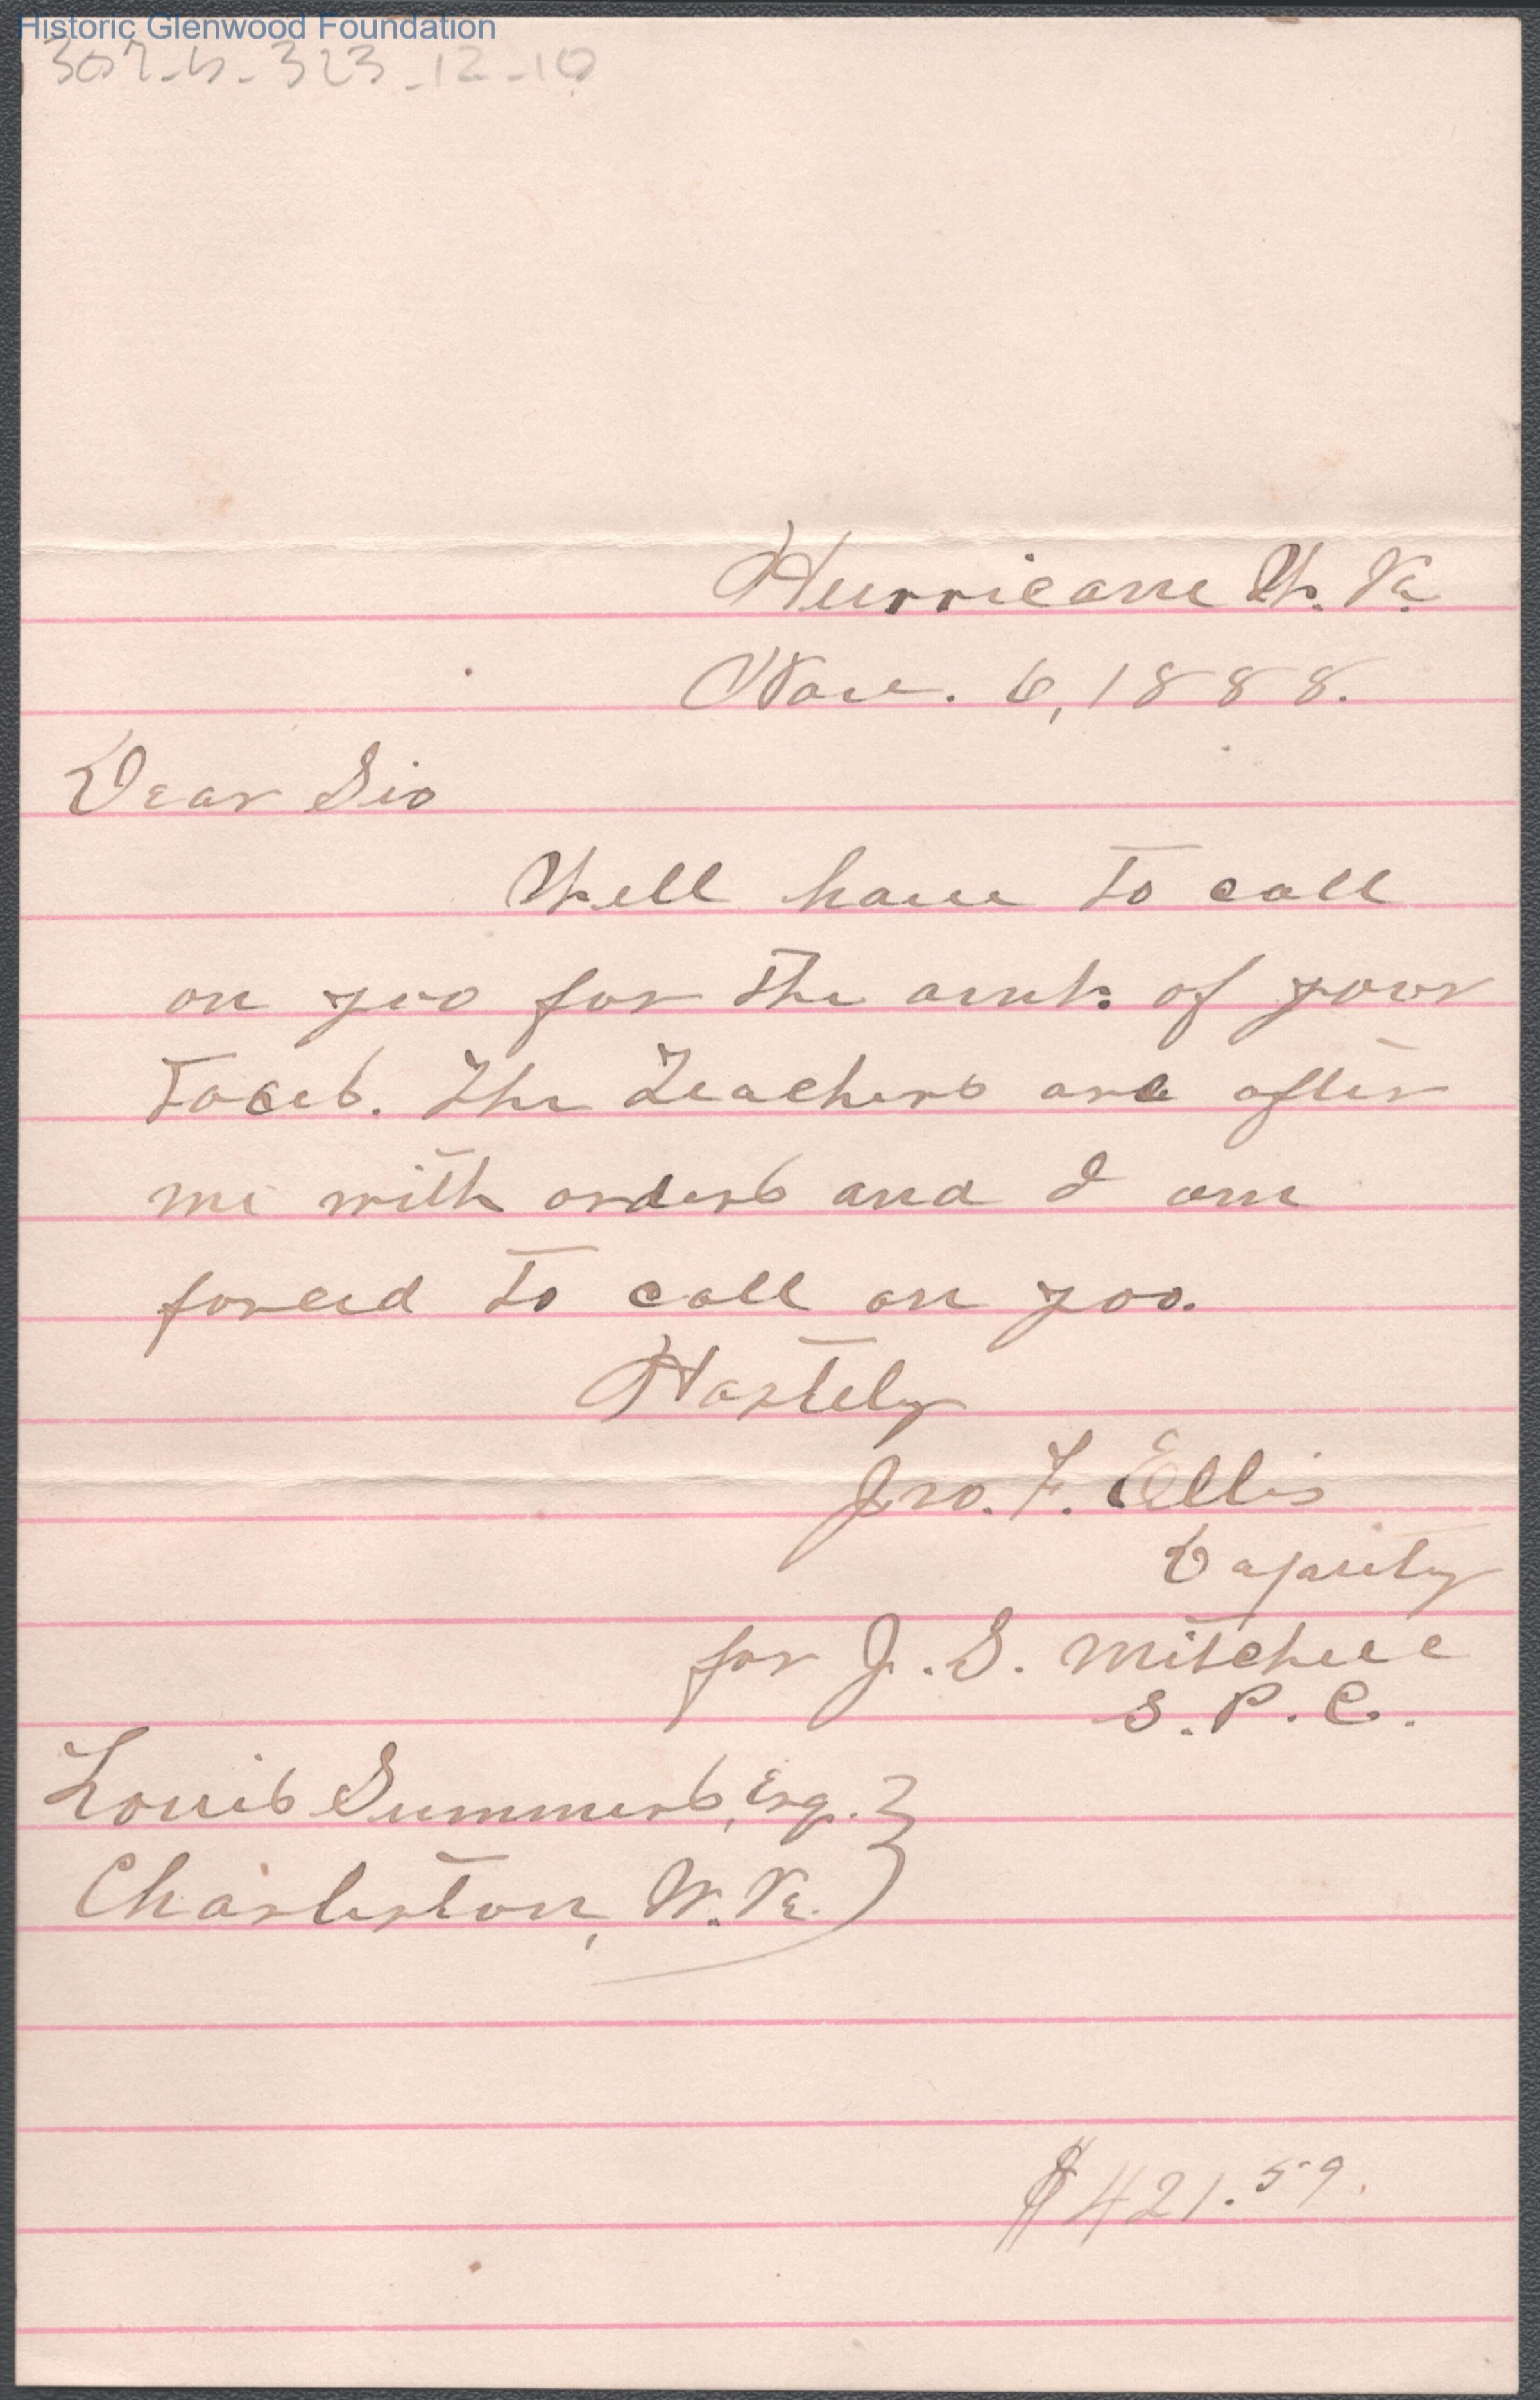 Historic Glenwood Foundation
307-b-323-12-10
Hurricane W. Va.
Nov. 6, 1888.
Dear Sir
Will have to call
on you for the amt. of your
Taxes. The Teachers are after
me with orders and I am
forced to call on you.
Hastely
Jno. F. Ellis
Deputy
for J. S. Mitchell
S. P. C.
Louis Summers, Esq. }
Charleston, W. Va.
$421.59.